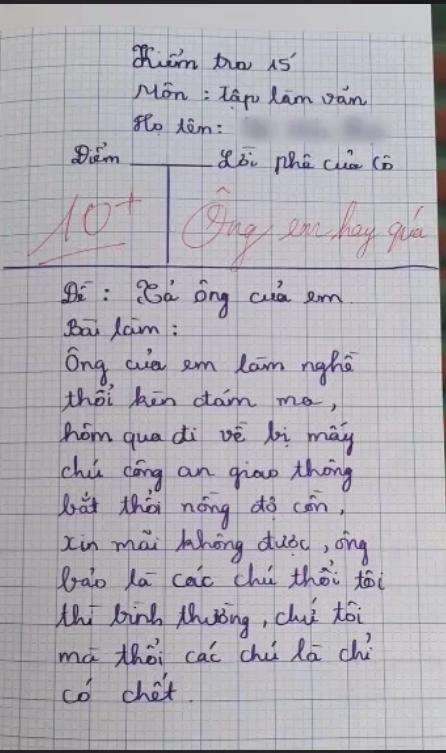 Kiểm tra 15'
Môn : Tập làm văn
Họ tên:
Điểm Lời phê của cô
10+ Ông em hay quá
Đề : Tả ông của em.
Bài làm :
Ông của em làm nghề
thổi kèn đám ma,
hôm qua đi về bị mấy
chú công an giao thông
bắt thổi nồng độ cồn,
xin mãi không được, ông
bảo là các chú thổi tôi
thì bình thường, chứ tôi
mà thổi các chú là chỉ
có chết.